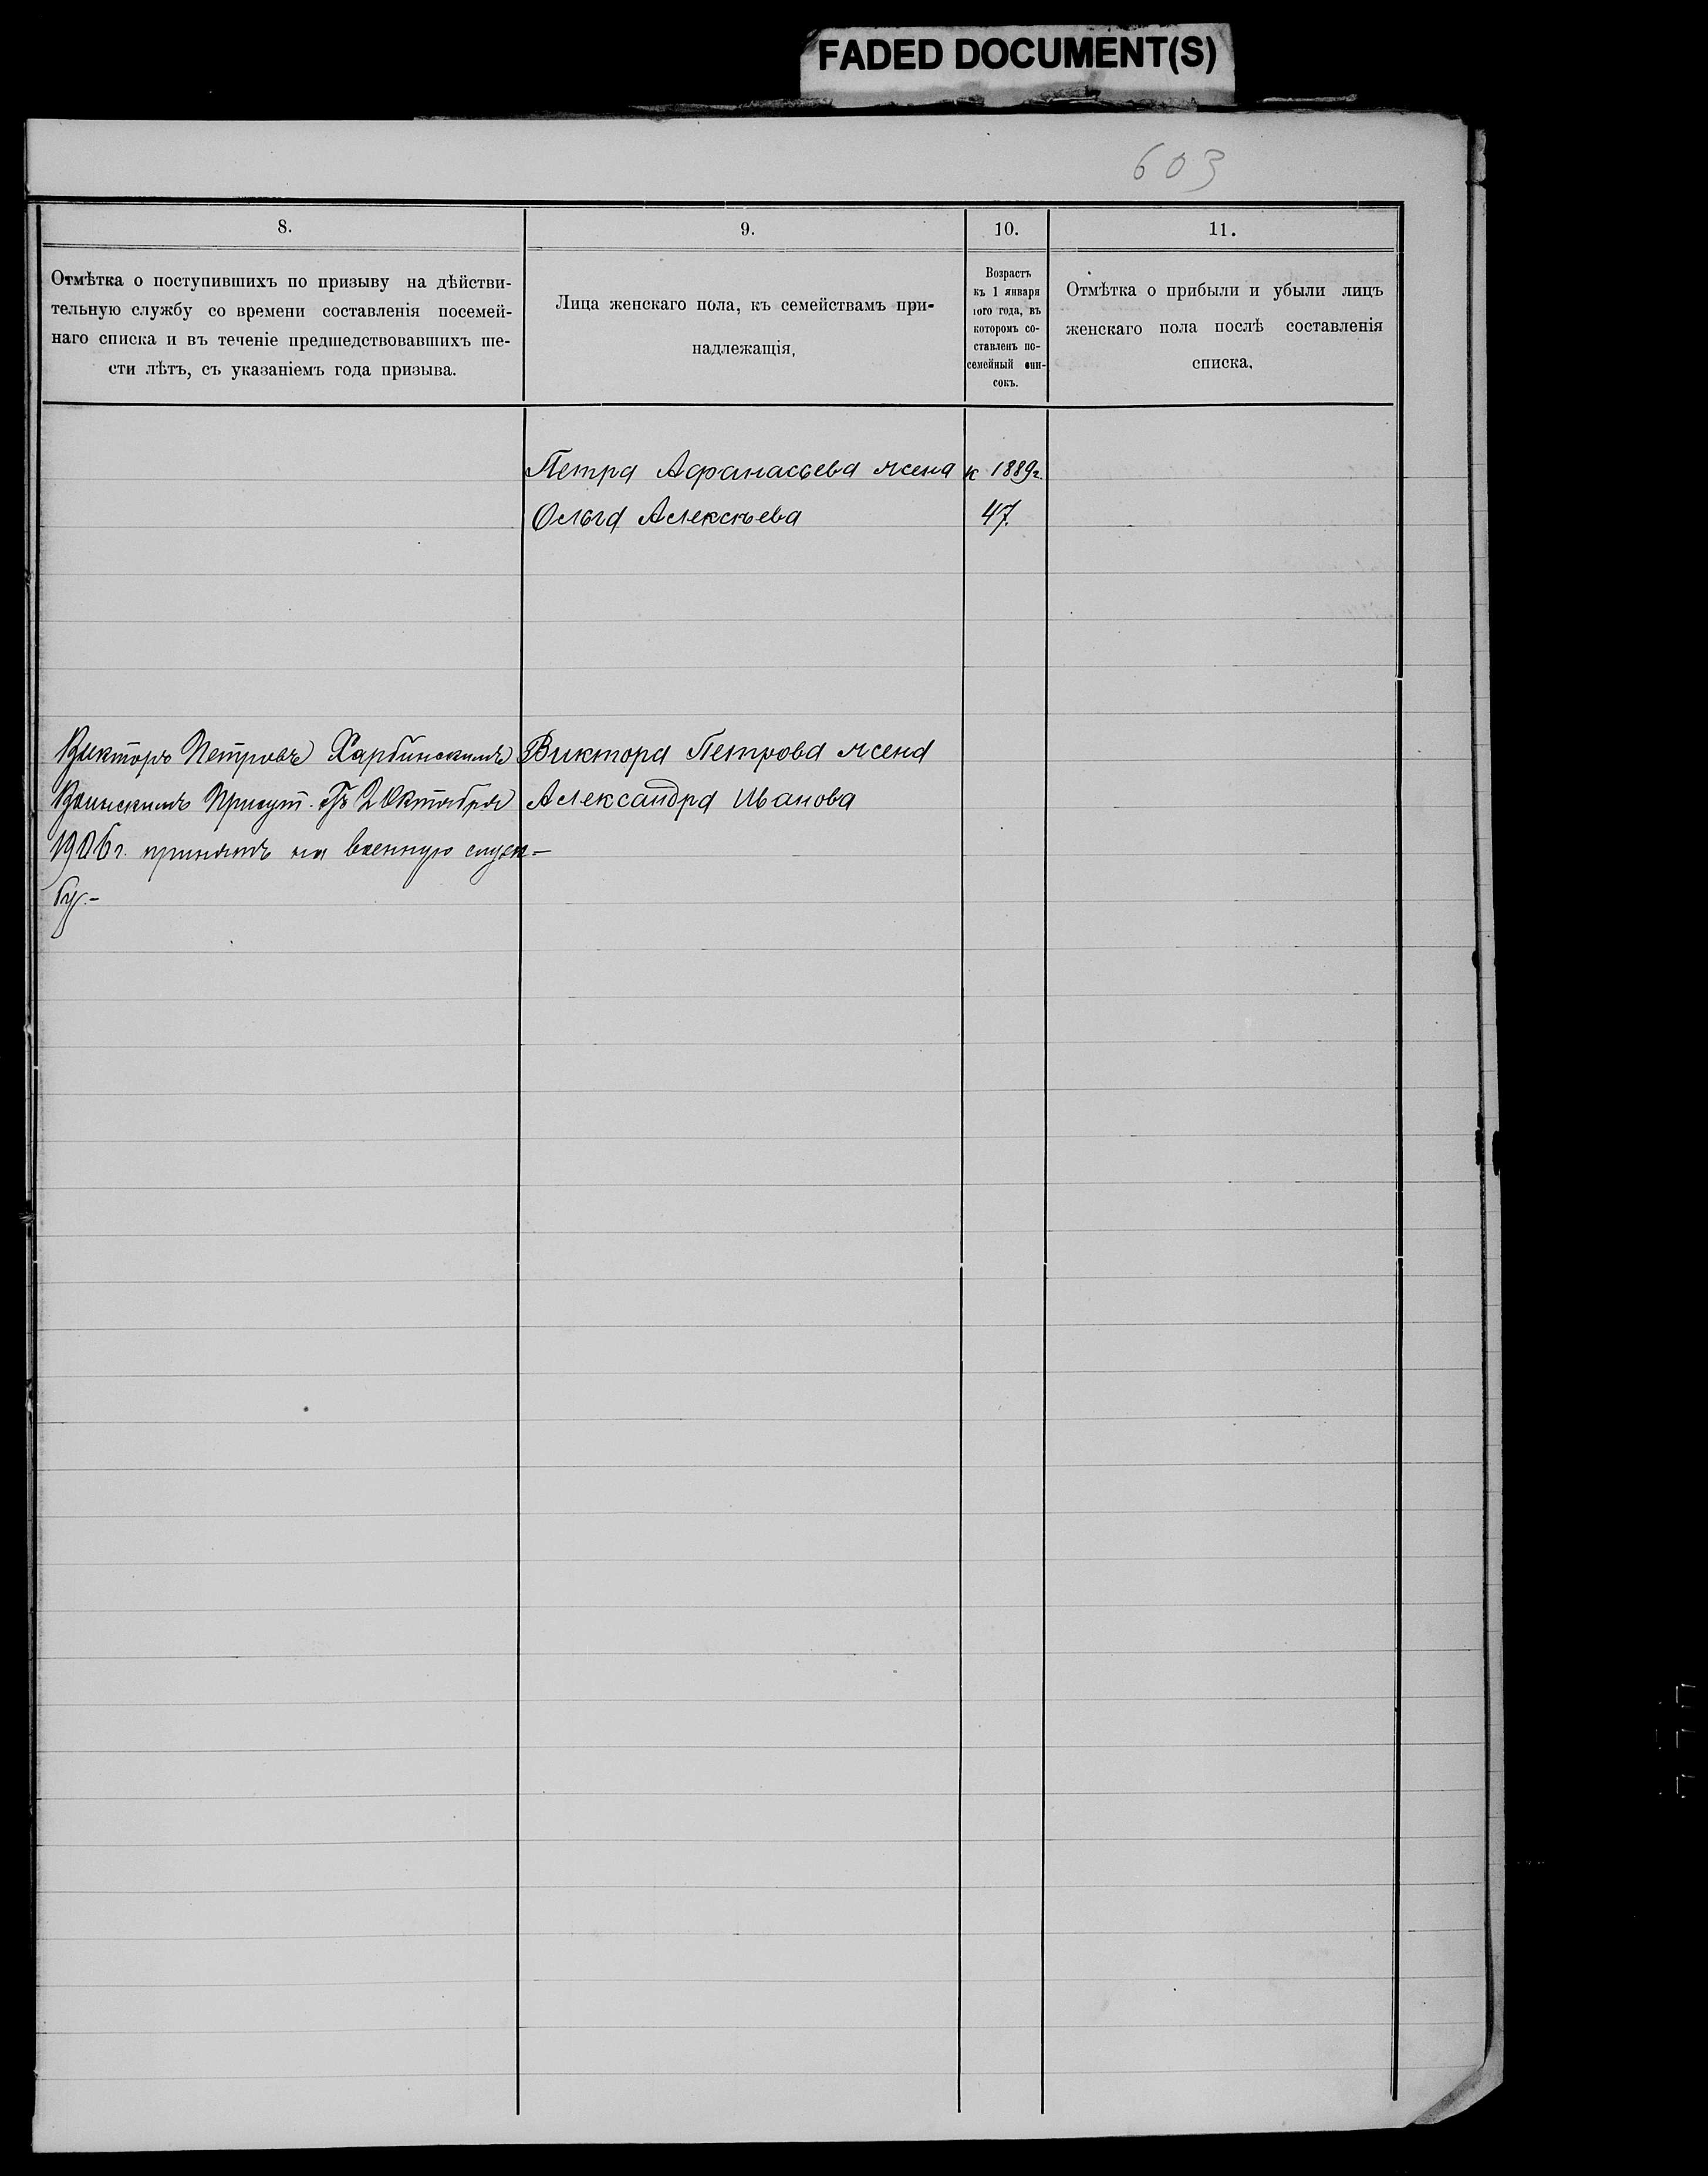 FADED DOCUMENT(S)
603
8.
Отмѣтка о поступившихъ по призыву на дѣйстви-
тельную службу со времени составленія посемей-
наго списка и въ теченіе предшедствовавшихъ ше-
сти лѣтъ, съ указаніемъ года призыва.
9.
Лица женскаго пола, къ семействамъ при-
надлежащія,
10.
Возрастъ
къ 1 января
того года, въ
которомъ со-
ставленъ по-
семейный спи-
сокъ.
11.
Отмѣтка о прибыли и убыли лицъ
женскаго пола послѣ составленія
списка.
Петра Афанасьева жена
к 1889г.
Ольга Алексѣева
47.
Викторъ Петровъ Харбинскимъ
Воинскимъ Присут. 2 Октября
1906г. принятъ на военную служ-
бу.-
Виктора Петрова жена
Александра Иванова